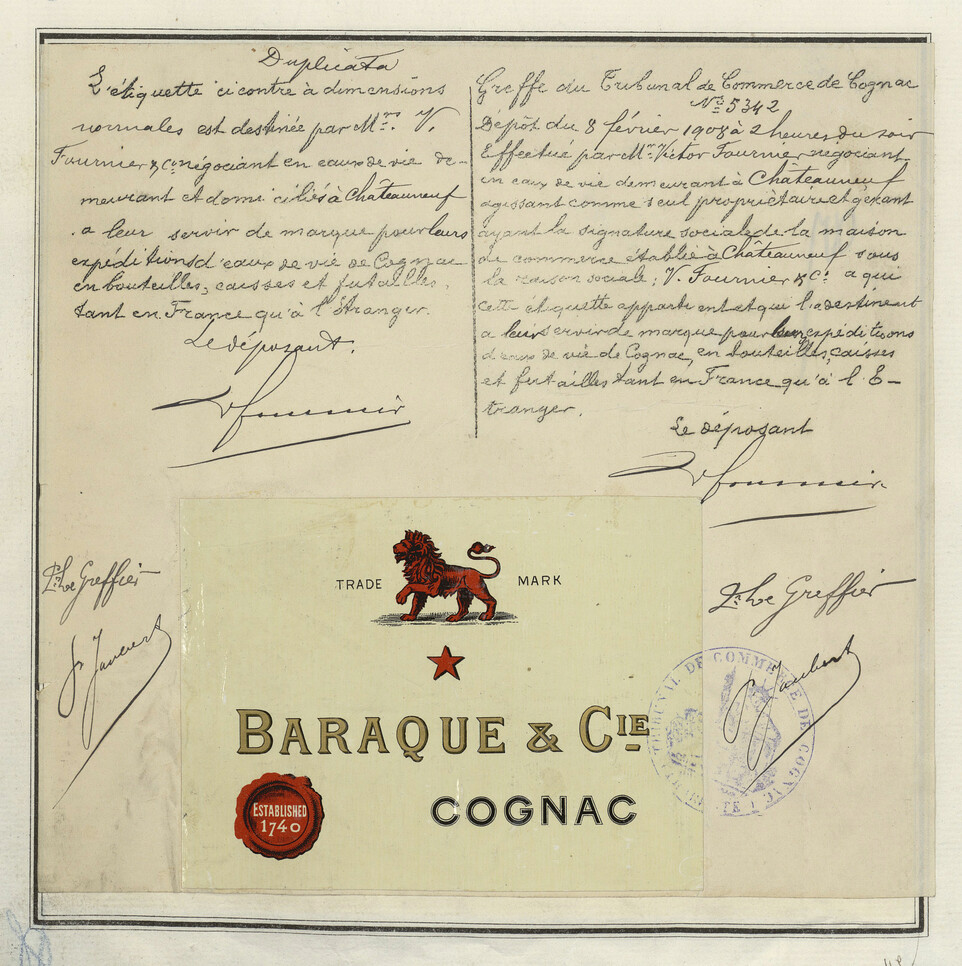 Duplicata
L'étiquette ci contre à dimensions
normales est destinée par Mrs. V.
Fournier & Co négociant en eaux de vie de-
meurant et domiciliés à Châteauneuf
a leur servir de marque pour leurs
expéditions d'eaux de vie de Cognac
en bouteilles, caisses et futailles,
tant en France qu'à l'Étranger.
Le déposant.
V Fournier
Greffe du Tribunal de Commerce de Cognac
No 5342
Dépôt du 8 février 1908 à 2 heures du soir
Effectué par Mr. Victor Fournier négociant
en eaux de vie demeurant à Châteauneuf
agissant comme seul propriètaire et gérant
ayant la signature sociale de la maison
de commerce établie à Châteauneuf sous
la raison sociale; V. Fournier & Co a qui
cette étiquette appartient et qui la destinent
a leur servir de marque pour leurs expéditions
d'eaux de vie de Cognac, en bouteilles, caisses
et futailles tant en France qu'à l'E-
tranger.
Le déposant
V Fournier
Le Greffier
Jaubert
Le Greffier
Jaubert
TRADE MARK
BARAQUE & CIE
ESTABLISHED
1740
COGNAC
TRIBUNAL DE COMMERCE DE COGNAC